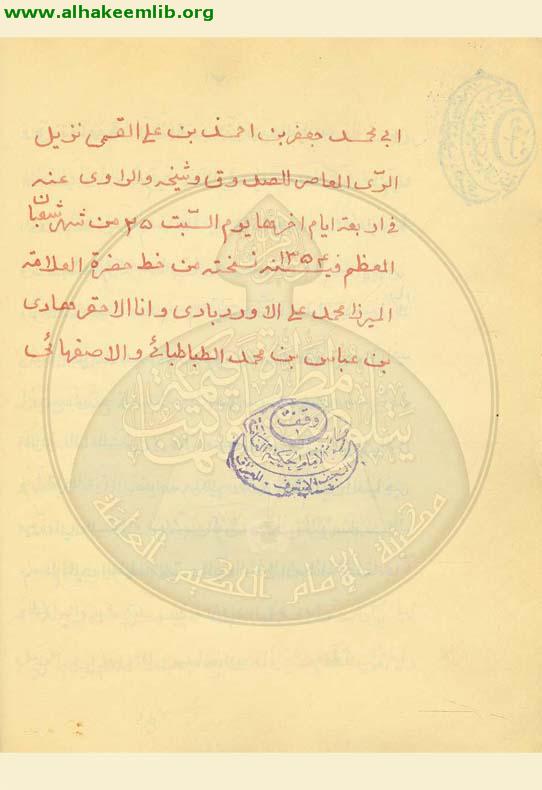 www.alhakeemlib.org
ابي محمد جعفر بن احمد بن علي القمي نزيل
الرّي المعاصر للصدوق وشيخه والراوى عنه
في اربعة ايام اخرها يوم السّبت ٢٥ من شهر شعبان
المعظم في سنه ١٣٥٤ نسخته من خط حضرة العلامة
الميرزا محمد علي الاوردبادى وانا الاحقر مهدى
بن عباس بن محمد الطباطبائي والاصفهاني
وقف
مكتبة الإمام الحكيم العامة
النجف الاشرف - العراق
مكتبة الإمام الحكيم العامة